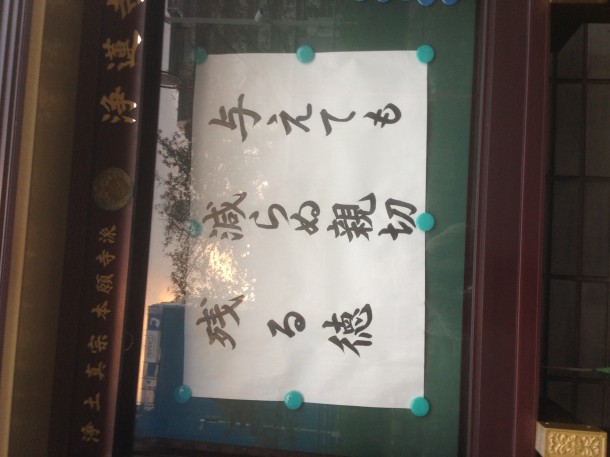 浄土真宗本願寺派 浄蓮寺
与えても
減らぬ親切
残る徳